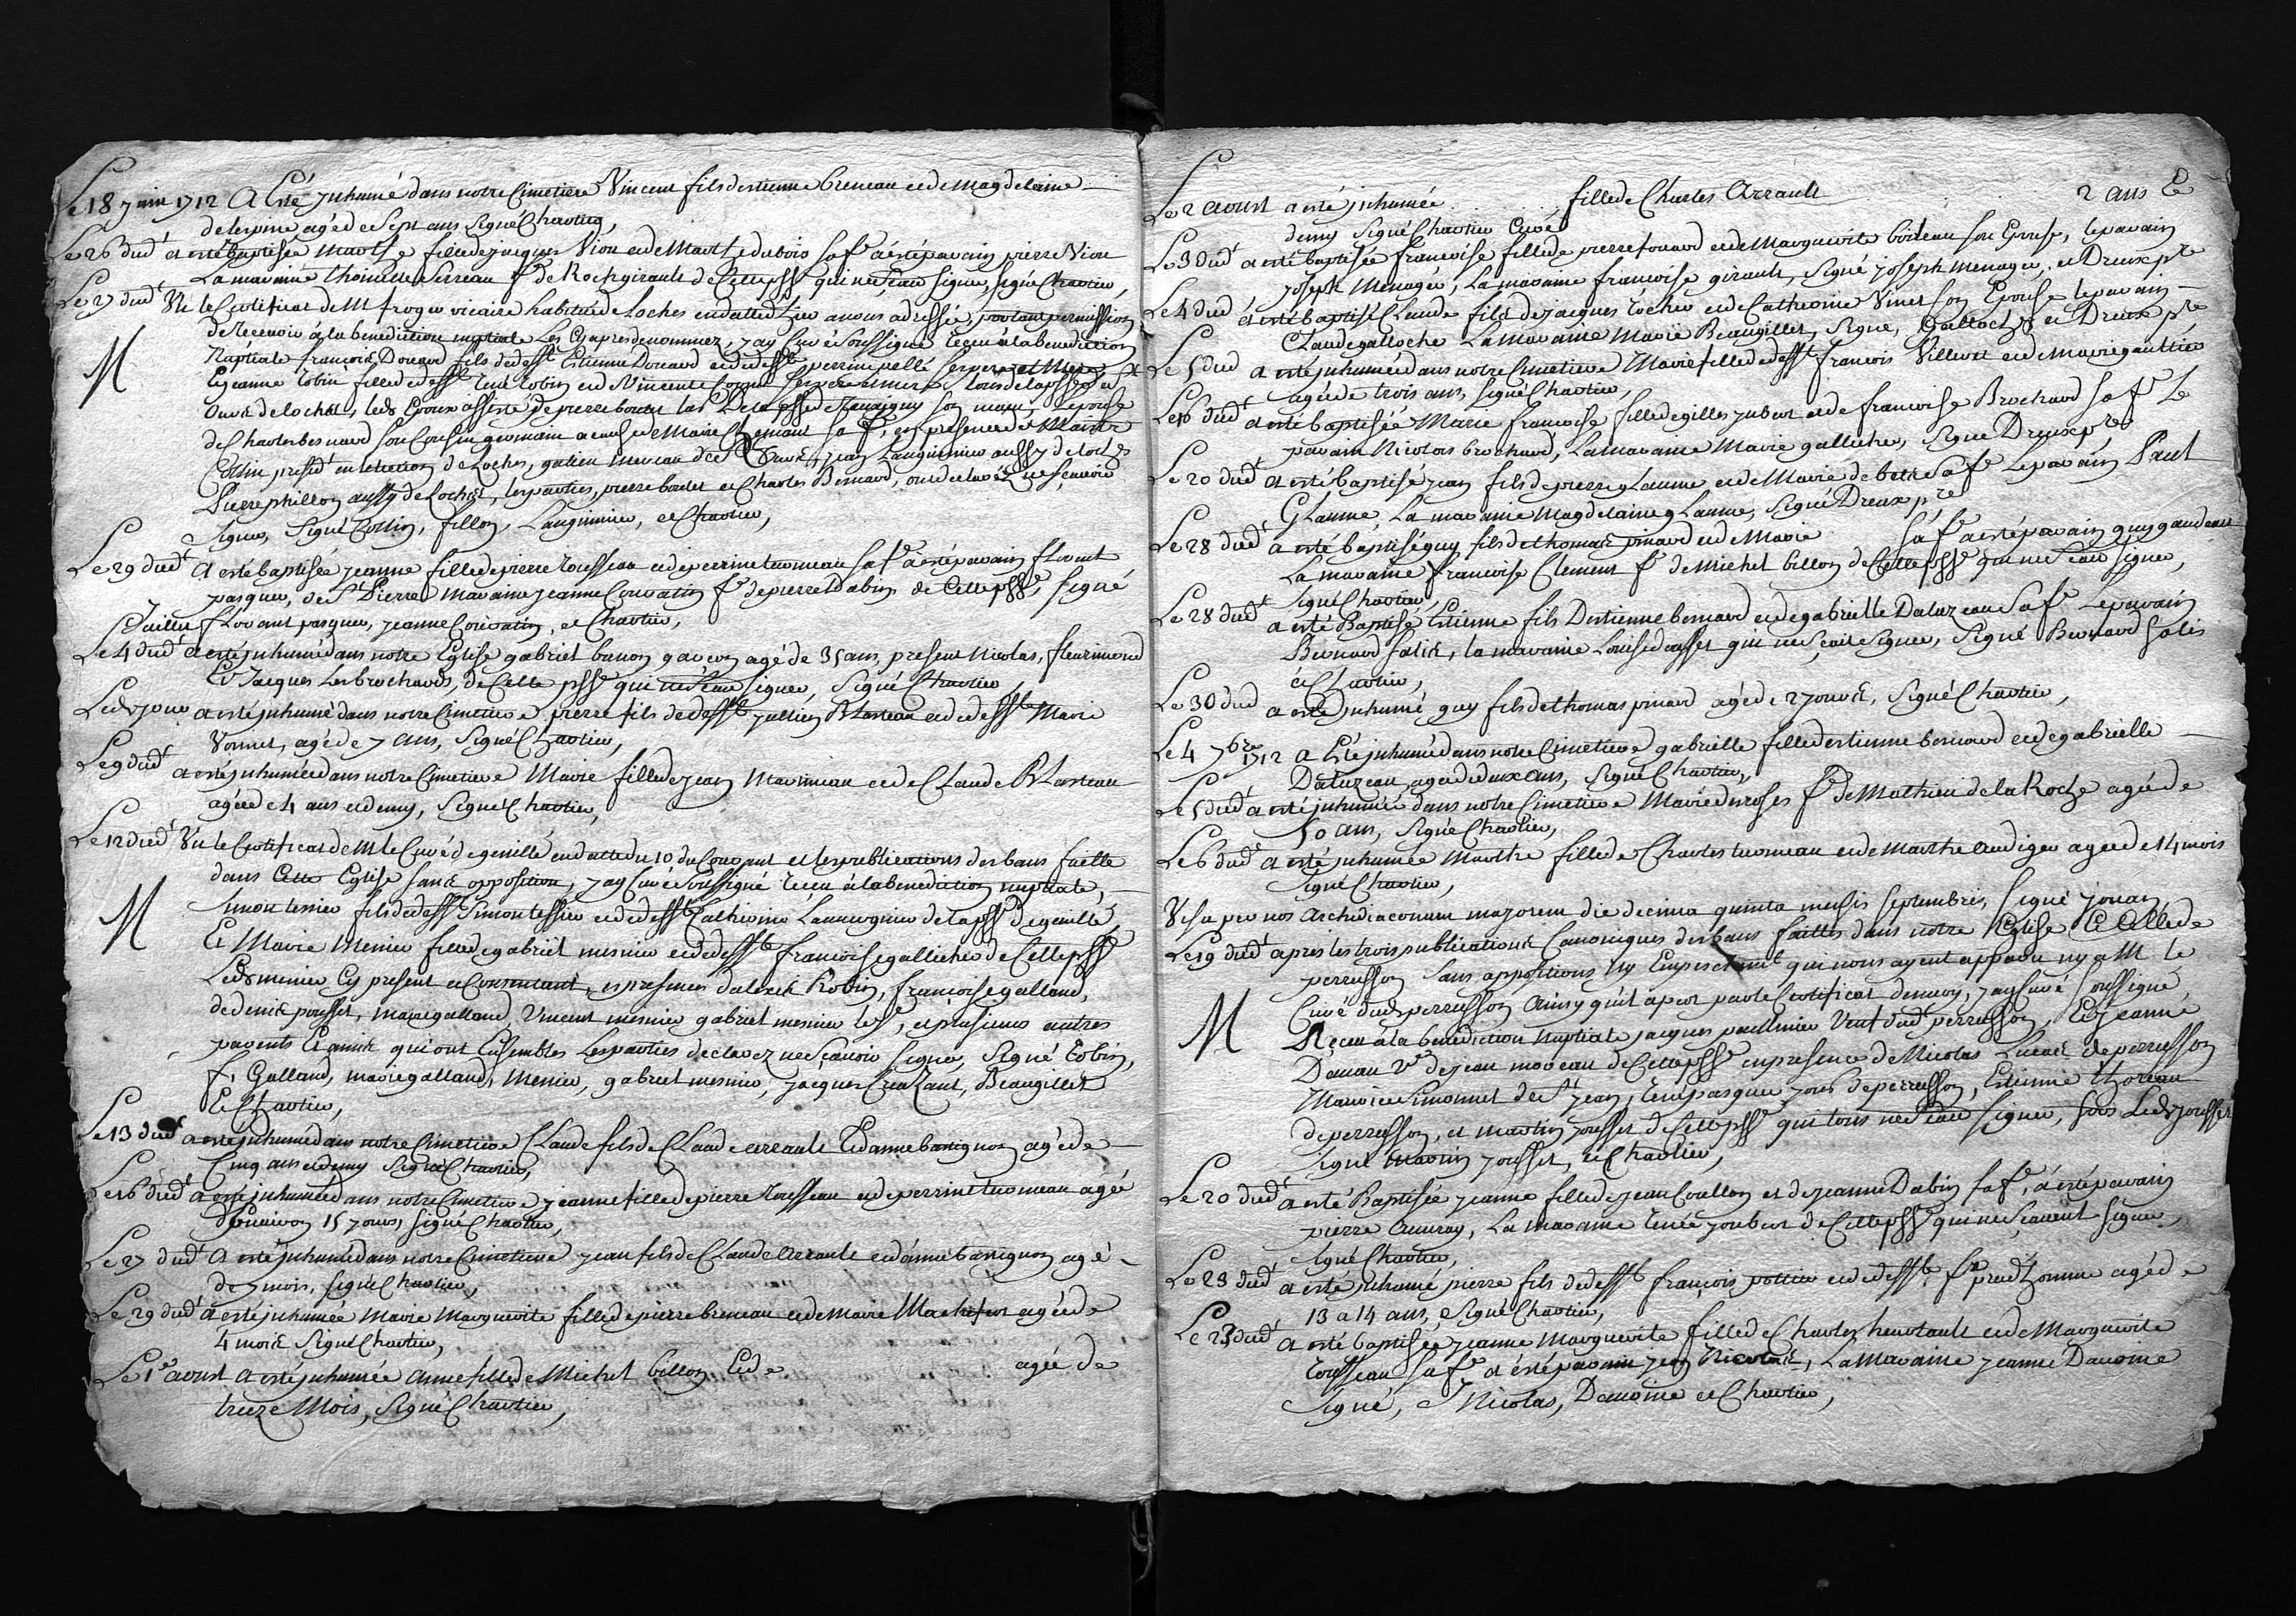 Le 18 juin 1712 A Esté juhumé dans notre Cimetiere Vincent fils destienne breneau et de Magdelaine
delespine agé de Sept ans Signé Chartier,
Le 26 dudt a esté baptisée Marthe fille de jacques Vion et de Marthe dubois sa fe a esté parain pierre Vion
La maraine Thoinette fe de Roch girault de Cette psse qui ne sçait signer, signé Chartier,
Le 27 dudt Vu le Certificat de Mr vicaire habitué de Loches en datte du a nous adressée, portant permission
de recevoir à la benediction nuptiale Les Cy apres denommez, j'ay Curé Soussigné reçeu à la benediction
M
Nuptiale françois Douard fils de defft Estienne Douard et de defte perrine pellé
Et jeanne Tobin fille de defft René Tobin et de Vincente
de Loches, leds Epoux assisté de pierre bordet de la psse de
de Charles besnard son Cousin germain a cause de Marie Clemant sa fe, en presence de
Collin presidt en lelection de Loches, jean Lauginnier aussy de Loches
Pierre phillon aussy de Loches, les parties, pierre bordet et Charles Besnard, ont declaré ne sçavoir
Signer, Signé Collin, fillon, Lauginnier, et Chartier,
Le 29 dudt A esté baptisée jeanne fille de pierre rousseau et de perrine tuoneau sa fe a esté parain florent
pasquer, de St Pierre Maraine jeanne Couratin fe de pierre Dabin de Cette psse, signé
Juillet florant pasquer, jeanne Couratin, et Chartier,
Le 4 dudt a esté juhumé dans notre Eglise gabriel banon garcon agé de 35 ans, present Nicolas, fleurimond
Et Jacques Les brochards, de Cette psse qui ne sçait signer, Signé Chartier
Leds jour a esté juhumé dans notre Cimetiere pierre fils de defft jullien Blasteau et de deffte Marie
Vonnet, agé de 7 ans, Signé Chartier,
Le 9 dudt a esté juhumée dans notre Cimetiere Marie fille de jean Marineau et de Claude Blasteau
agée de 4 ans et demy, Signé Chartier,
Le 12 dudt Vu le Certificat de Mr le Curé de genillé en datte du 10 du Courant et les publications des bans faitte
dans Cette Eglise sans opposition, j'ay Curé Soussigné reçeu à la benediction nuptiale,
M
Simon tessier fils de defft Simon tessier et de deffte Catherine de la psse de genillé
Et Marie Mesnier fille de gabriel mesnier et de deffte françoise gallicher de Cette psse
Leds mesnier Cy present et Consentant, en presence dalexis Robin, francoise galland,
de denis pousset, marie galland, Vincent mesnier gabriel mesnier le je, et plusieurs autres
parents Et amis qui ont Ensembles Les parties declarez ne sçavoir signer, Signé Tobin,
f, Galland, marie galland, Menier, gabriel mesnier, jacques Beaugillet
Et Chartier,
Le 13 dudt a esté juhumé dans notre Cimetiere Claude fils de Claude arrault Et danne barignon agé de
Cinq ans et demy Signé Chartier,
Le 16 dudt a esté juhumée dans notre Cimetiere jeanne fille de pierre rousseau et de perrine tuoneau agée
denviron 15 jours, signé Chartier,
Le 27 dudt a esté juhumé dans notre Cimetiere jean fils de Claude Arrault et danne barignon agé
de 7 mois, signé Chartier,
Le 29 dudt a esté juhumée Marie Marguerite fille de pierre breneau et de Marie agée de
4 mois Signé Chartier,
Le 1er aoust a esté juhumée Anne fille de Michel billon Et de agée de
treize Mois, Signé Chartier,
Le 2 aoust a esté juhumée fille de Charles Arrault 2 ans Et
demy Signé Chartier Curé
Le 3 dudt a esté baptisée francoise fille de pierre fouard et de Marguerite boileau son Epouse, le parain
joseph Menager, La maraine francoise girault, Signé joseph menager, et Dreux pre
Le 4 dudt a esté baptisé Claude fils de jacques rocher et de Catherine Vinet son Epouse le parain
Claude galloche La maraine Marie Beaugillet, Signé, Galloche et Dreux pre
Le 5 dudt a esté juhumée dans notre Cimetiere Marie fille de defft francois Villeret et de Marie gaultier
agée de trois ans, signé Chartier,
Le 16 dudt a esté baptisée Marie francoise fille de gilles jubert et de francoise Brochard sa fe Le
parain Nicolas brochard, La maraine Marie gallicher, Signé Dreux pre
Le 20 dudt a esté baptisé jean fils de pierre glaume et de Marie de betre sa fe Le parain Paul
Glaume, La maraine Magdelaine glaume, Signé Dreux pre
Le 28 dudt a esté baptisé guy fils de thomas pinard et de Marie sa fe a esté parain guy gaudeau
La maraine francoise Clement fe de Michel billon de Cette psse qui ne sçait signer,
Signé Chartier,
Le 28 dudt a esté Baptisé Estienne fils Destienne bernard et de gabrielle Daluzeau sa fe Le parain
Bernard salis, la maraine Louise dousset qui ne sçait signer, Signé Bernard Salis
et Chartier,
Le 30 dud a esté juhumé guy fils de thomas pinard agé de 2 jours, Signé Chartier,
Le 4 7bre 1712 a Esté juhumée dans notre Cimetiere gabrielle fille destienne bernard et de gabrielle
Daluzeau, agée de deux ans, Signé Chartier,
Le 5 dudt a esté juhumée dans notre Cimetiere Marie fe de Mathieu de la Roche agée de
50 ans, Signé Chartier,
Le 6 dudt a esté juhumée Marthe fille de Charles tuoneau et de Marthe audiger agée de 14 mois
Signé Chartier,
Visa per nos Archidiaconum majorem die decima quinta mensis septembris, signé jouan,
Le 19 dudt apres les trois publications Canoniques des bans faittes dans notre Eglise Et Celle de
perrusson sans oppositions ny Empeschemt qui nous ayent apparu ny a Mr le
M
Curé duds perrusson Ainsy qu'il apert par le Certificat denvoy, j'ay Curé soussigné
Reçeu à la benediction Nuptiale, jacques paulmier Veuf dudt perrusson, Et jeanne
Davau Ve de jean moreau de Cette psse en presence de Nicolas de perrusson
Maurice Simonnet de St jean, René pasquier de perrusson, Estienne thoreau
de perrusson, et martin jousset de Cette psse qui tous ne sçait signer, fors Leds jousset
Signé martin jousset, et Chartier,
Le 20 dudt a esté Baptisée jeanne fille de jean Coullon et de jeanne Dabin sa fe, a esté parain
pierre Auuray, La maraine renée joubert de Cette psse qui ne sçavent signer,
Signé Chartier,
Le 23 dudt a esté juhumé pierre fils de defft françois pottier et de deffte fse prud'homme agé de
13 a 14 ans, Signé Chartier,
Le 23 dudt a esté baptisée jeanne Marguerite fille de Charles heurtault et de Marguerite
rousseau sa fe a esté parain jean Nicolas, La Maraine jeanne Dauoine
Signé, J Nicolas, Dauoine et Chartier,